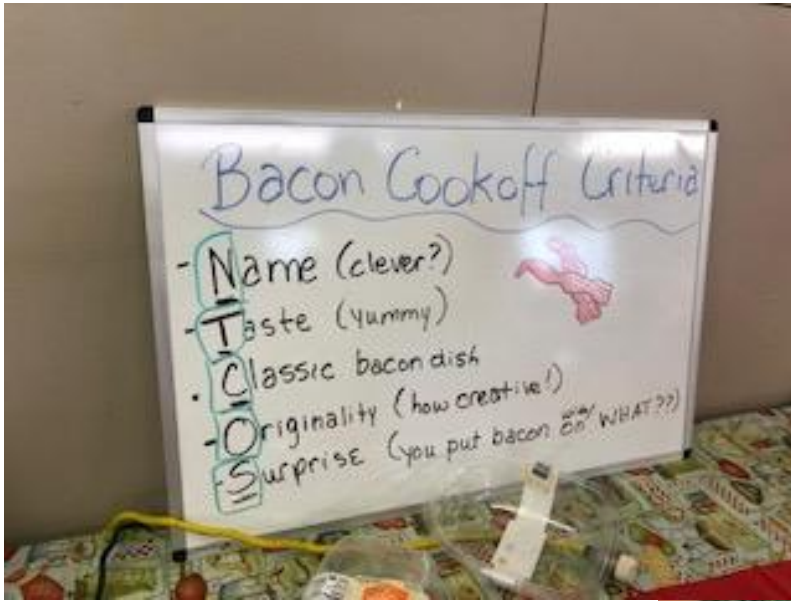 Bacon Cookoff Criteria
- Name (clever?)
- Taste (yummy)
· Classic bacon dish
- Originality (how creative!)
- Surprise (you put bacon on WHAT??)